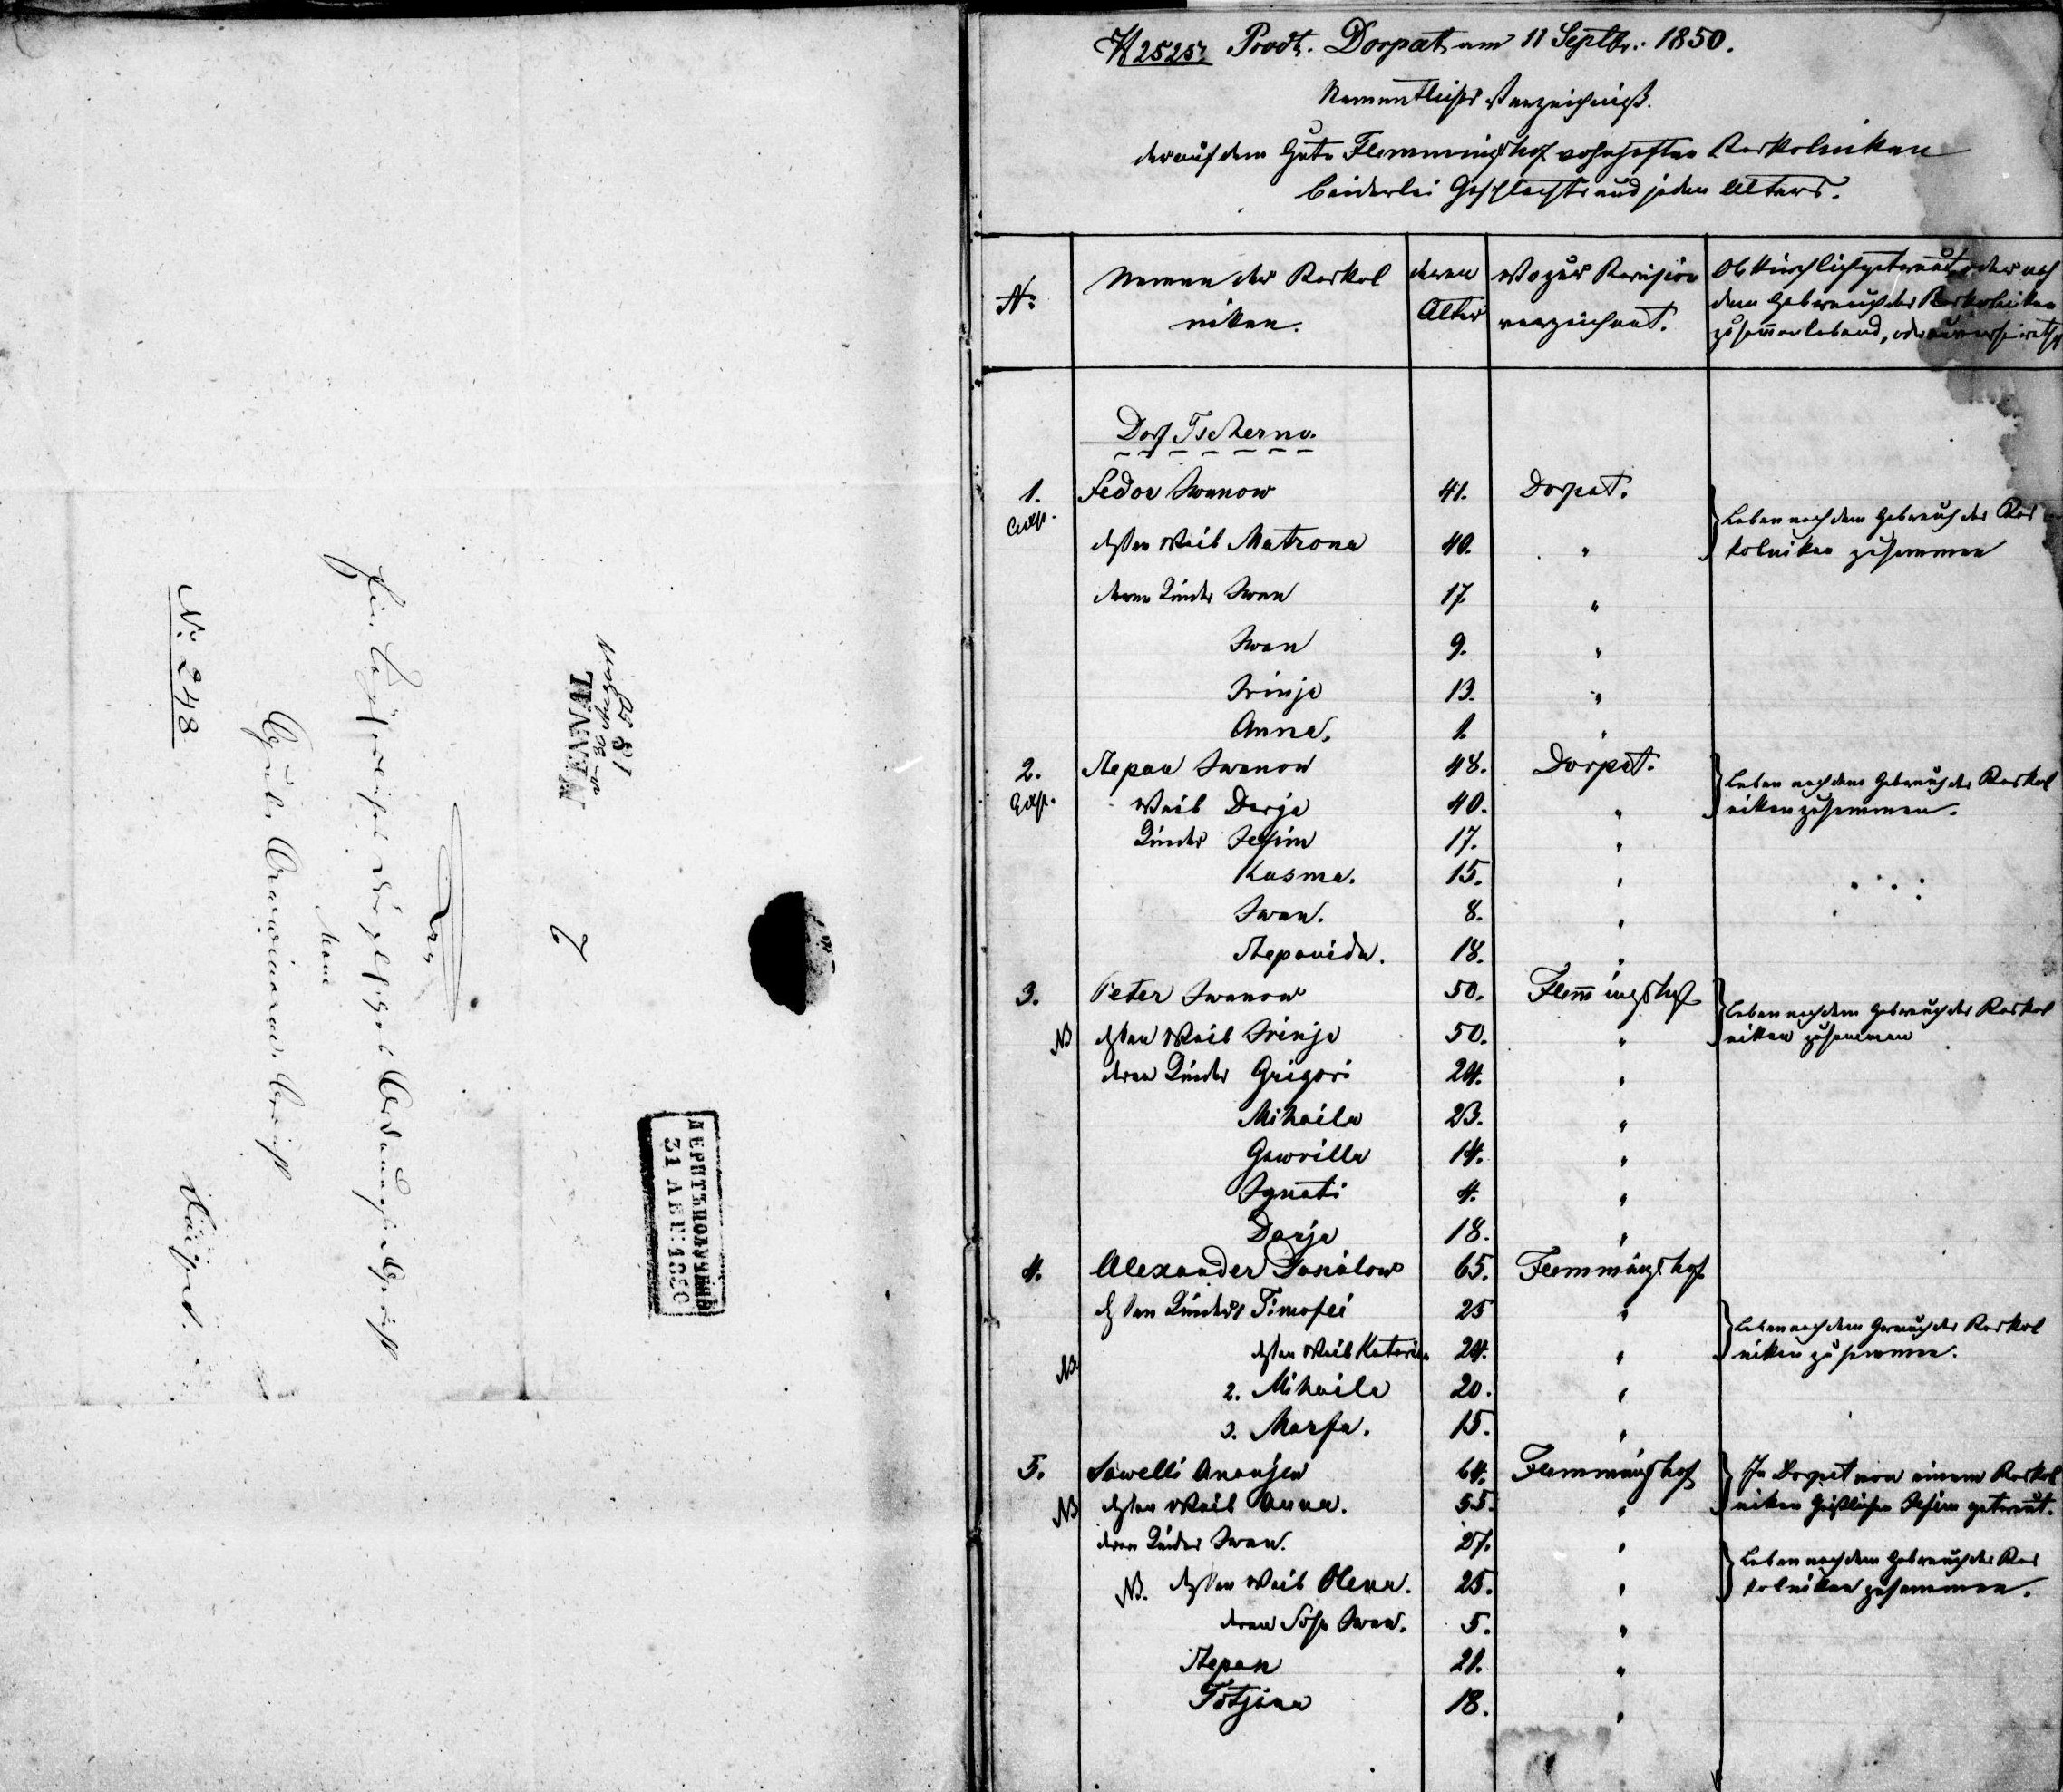 № 248
NENNAL
30 August
1850
ДЕРПТЪ ПОЛУЧЕНО
31 АВГ: 1850
№ 2525. Prodt. Dorpat am 11 Septbr: 1850.
Namentliches Verzeichniß
der auf dem Gute Flemmingshof wohnhaften Raskolniken
beiderlei Geschlechts und jeden Alters.
№ | Namen der Raskol | deren | Wo zur Revision | Ob kirchlich getraut, oder nach
niken. | Alter | verzeichnet. | dem Gebrauch der Raskolniken
zusammenlebend, oder unverheirath
Dorf Tscherno.
1. Fedor Iwanow 41. Dorpat. Leben nach dem Gebrauch der Ras
dessen Weib Matrona 40. " kolniken zusammen
deren Kinder Iwan 17. "
Iwan 9. "
Irinja 13. "
Anna. 1. "
2. Stepan Iwanow 48. Dorpat. Leben nach dem Gebrauch der Raskol
Weib Darja 40. " niken zusammen.
Kinder Jefim 17. "
Kusma. 15. "
Iwan. 8. "
Stepanida. 18. "
3. Peter Iwanow 50. Flemingshof Leben nach dem Gebrauch der Raskol
NB dessen Weib Irinja 50. " niken zusammen
deren Kinder Grigori 24. "
Mihaila 23. "
Gawrilla 14. "
Ignati 4. "
Darja 18. "
4. Alexander Danilow 65. Flemmingshof
dessen Kinder 1 Timofei 25 " Leben nach dem Gebrauch der Raskol
NB dessen Weib Katarina 24. " niken zusammen.
2. Mihaila 20. "
3. Marfa. 15. "
5. Sawelli Ananjew 64. Flemmingshof In Dorpat von einem Raskol
NB dessen Weib Anna. 55. " niken Geistlichen Jefim getraut.
deren Kinder Iwan. 27. " Leben nach dem Gebrauch der Ras
NB. dessen Weib Olena. 25. " kolniken zusammen.
deren Sohn Iwan. 5. "
Stepan 21. "
Totjana 18. "